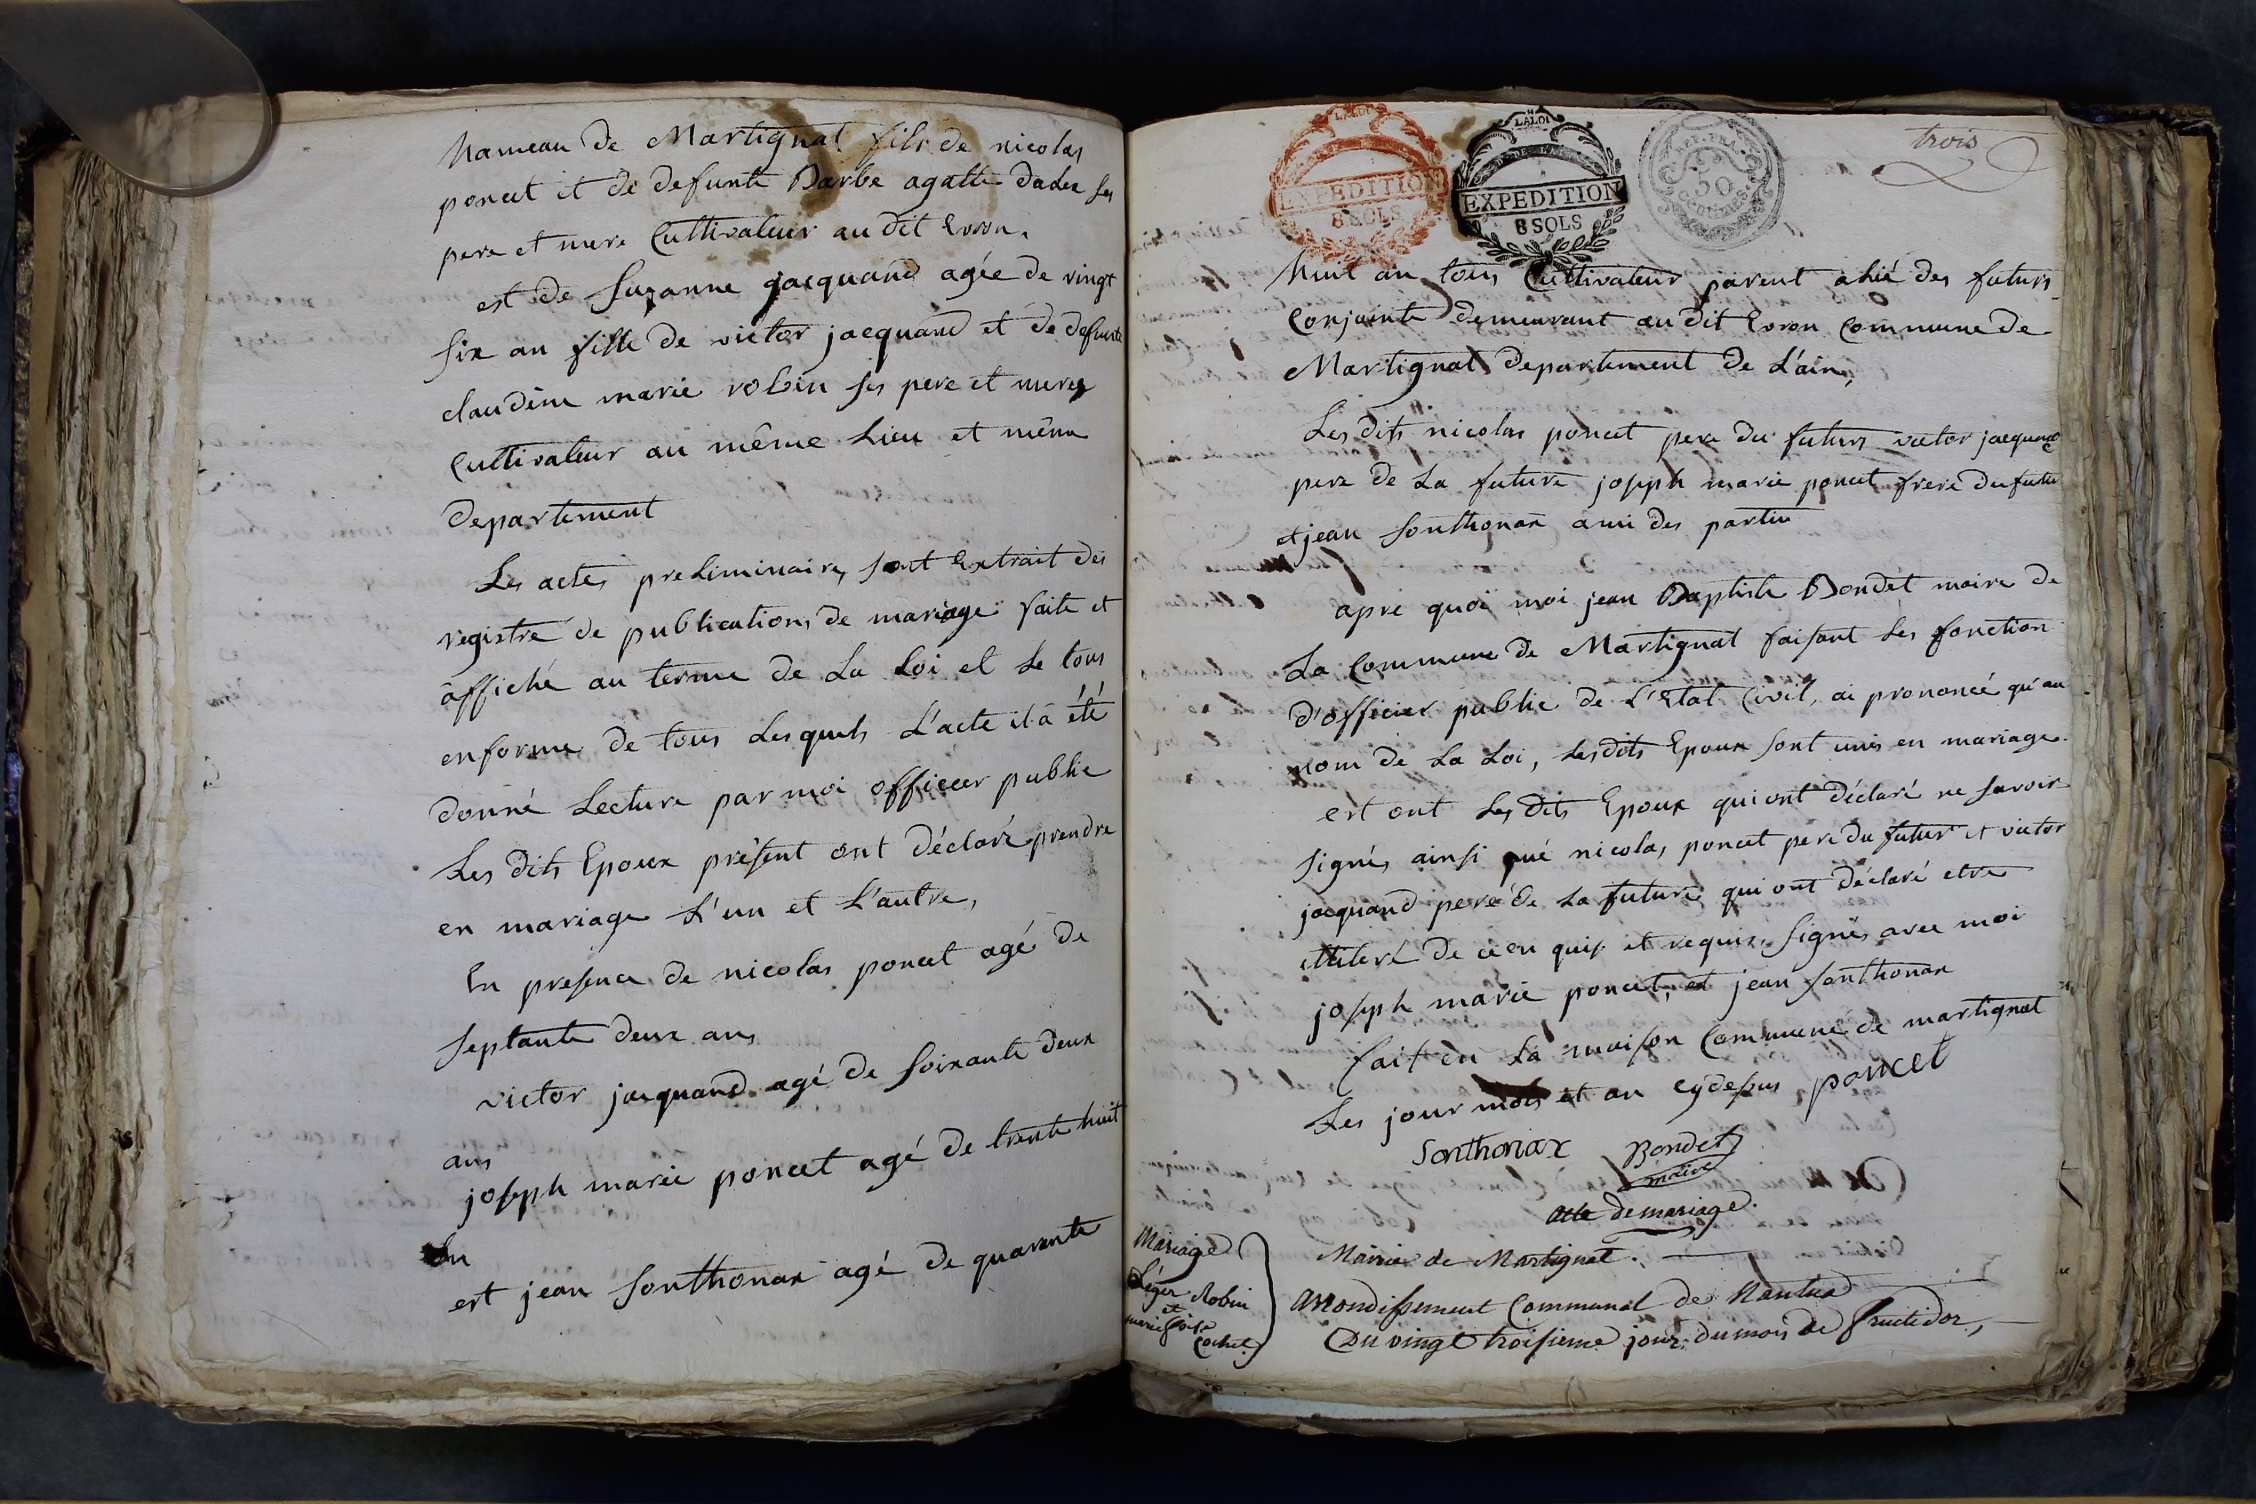 hameau de Martignat fils de nicolas
poncet et de defunte Barbe agatte dader ses
pere et mere Cultivateur au dit Evron.
est de Suzanne jacquand agée de vingt
six an fille de victor jacquand et de defunte
claudine marie robin ses pere et meres
Cultivateur au même Lieu et même
departement
Les actes preliminaires sont Extrait des
registre de publications de mariage faite et
affiché au terme de La Loi et Le tous
enforme de tous Lesquels L'acte il a été
donné Lecture par moi officier public
Les dits Epoux présent ont déclaré prendre
en mariage L'un et L'autre,
En presence de nicolas poncet agé de
septante deux ans
victor jacquand agé de soixante deux
ans
joseph marie poncet agé de trente huit
an
est jean Sonthonax agé de quarante
LA LOI
EXPEDITION
8 SOLS
LA LOI
EXPEDITION
8 SOLS
REP. FRA.
50
centimes.
trois
huit an tous Cultivateur parent alié des futurs
Conjointe demeurant au dit Evron Commune de
Martignat departement de L'ain,
Les dits nicolas poncet pere du futurs victor jacquand
pere de La future joseph marie poncet frere du futur
et jean Sonthonax ami des partie
apré quoi moi jean Baptiste Bondet maire de
La Commune de Martignat faisant Les fonction
d'officier public de L'Etat Civil, ai prononcé qu'au
nom de La Loi, Lesdits Epoux sont unis en mariage.
est ont Les dits Epoux qui ont déclaré ne savoir
signés ainsi qué nicolas poncet pere du futur et victor
jacquand pere de La future qui ont déclaré etre
illiteré de ce enquis et requis, signés avec moi
joseph marie poncet, et jean Sonthonax
fait en La maison Commune de martignat
Les jour mois et an cydessus poncet
Sonthonax Bondet
maire
acte de mariage.
Mariage
Léger Robin
et
marie
Cochet.
Mairie de Martignat.
arrondissement Communal de Nantua
Du vingt troisieme jour du mois de fructidor,